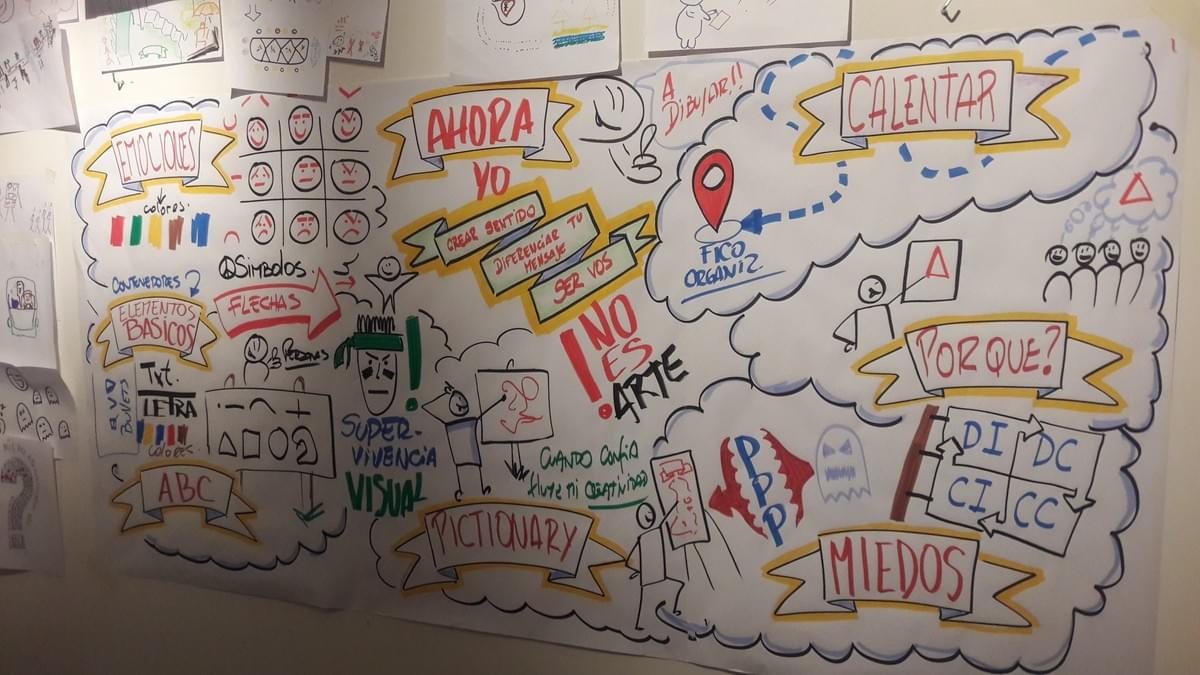 EMOCIONES
colores
CONTENEDORES
SIMBOLOS
ELEMENTOS
BASICOS
FLECHAS
PERSONAS
Txt.
LETRA
colores
ABC
AHORA
YO
A
DIBUJAR!!
CREAR SENTIDO
DIFERENCIAR TU
MENSAJE
SER VOS
¡NO
ES
ARTE
SUPER-
VIVENCIA
VISUAL
!
CUANDO CONFIA
fluye mi CREATIVIDAD
PICTIONARY
CALENTAR
FICO
ORGANIZ
POR QUE?
P
P
P
DI
DC
CI
CC
MIEDOS